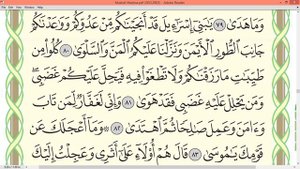 Mushaf Madina.pdf (SECURED) - Adobe Reader
وَمَا هَدَىٰ ٧٩ يَٰبَنِىٓ إِسْرَٰٓءِيلَ قَدْ أَنجَيْنَٰكُم مِّنْ عَدُوِّكُمْ وَوَٰعَدْنَٰكُمْ
جَانِبَ ٱلطُّورِ ٱلْأَيْمَنَ وَنَزَّلْنَا عَلَيْكُمُ ٱلْمَنَّ وَٱلسَّلْوَىٰ ٨٠ كُلُوا۟ مِن
طَيِّبَٰتِ مَا رَزَقْنَٰكُمْ وَلَا تَطْغَوْا۟ فِيهِ فَيَحِلَّ عَلَيْكُمْ غَضَبِى ۖ
وَمَن يَحْلِلْ عَلَيْهِ غَضَبِى فَقَدْ هَوَىٰ ٨١ وَإِنِّى لَغَفَّارٌ لِّمَن تَابَ
وَءَامَنَ وَعَمِلَ صَٰلِحًا ثُمَّ ٱهْتَدَىٰ ٨٢ وَمَآ أَعْجَلَكَ عَن
قَوْمِكَ يَٰمُوسَىٰ ٨٣ قَالَ هُمْ أُو۟لَآءِ عَلَىٰٓ أَثَرِى وَعَجِلْتُ إِلَيْكَ